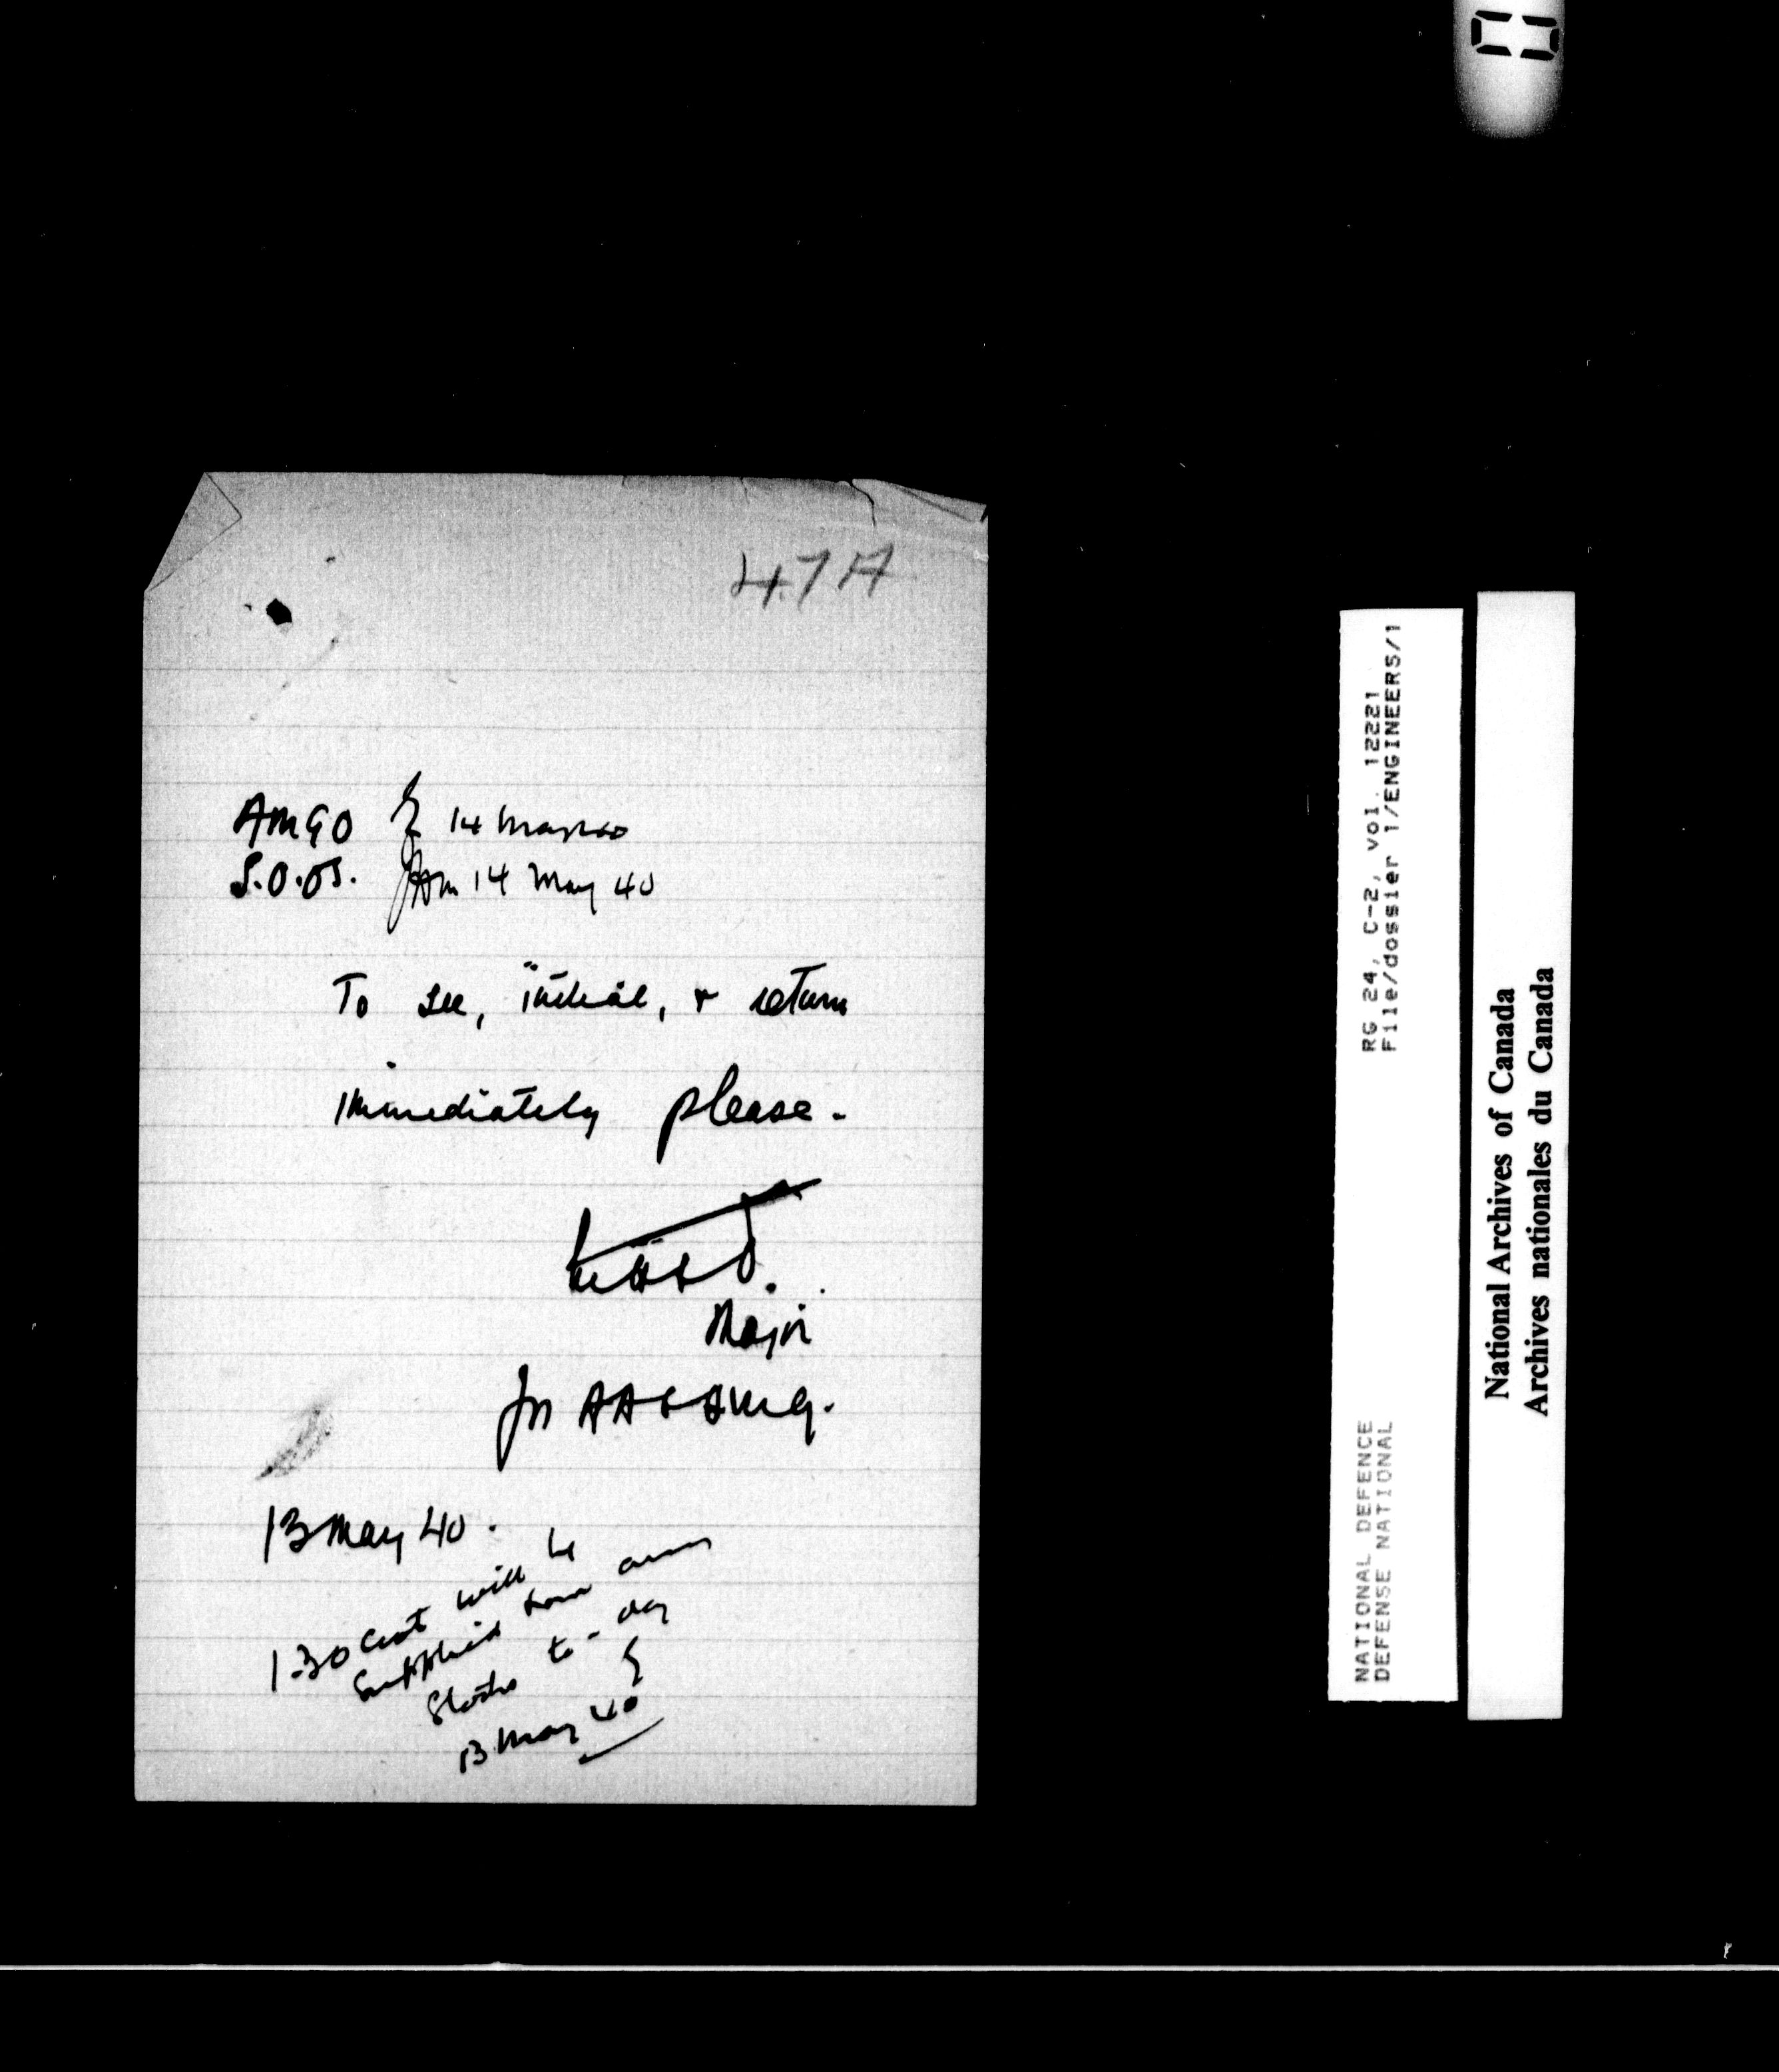 47A
AMGO 14 May 40
S.O.OS. 14 May 40
To see, initial, & return
immediately please.
Major
for AA & QMG.
13 May 40.
130 will be
supplied from
to-day
13 May 40
RG 24, C-2, vol. 12221
File/dossier 1/ENGINEERS/1
NATIONAL DEFENCE
DEFENSE NATIONAL
National Archives of Canada
Archives nationales du Canada